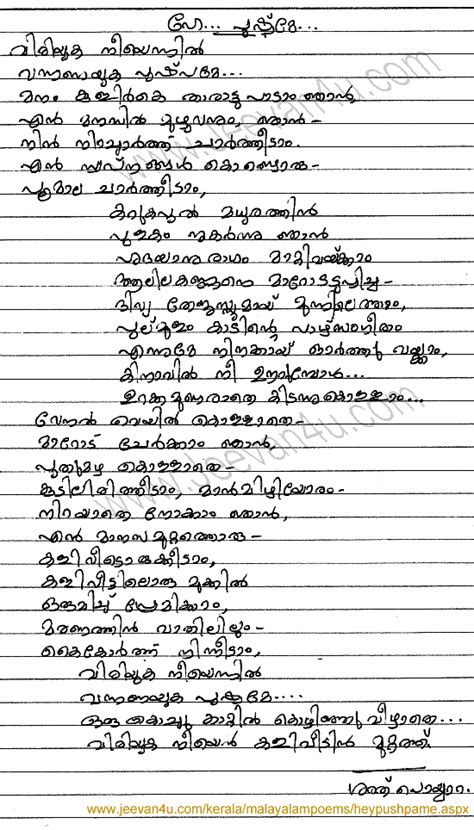 ഹേ... പുഷ്പമേ...
വിരിയുക നീയെന്നിൽ
വന്നണയുക പുഷ്പമേ...
മനം കുളിർകെ താരാട്ടു പാടാം ഞാൻ,
എൻ മനസിൽ മുഴുവനും, ഞാൻ-
നിൻ നിറച്ചാർത്ത് ചാർത്തീടാം.
എൻ സ്വപ്നങ്ങൾ കൊണ്ടൊരു-
പൂമാല ചാർത്തീടാം,
കറുകപുൽ മധുരത്തിൻ
പുളകം നുകർന്നു ഞാൻ
ഹൃദയാനുരാഗം മാറ്റിവയ്ക്കാം
ആലിലകണ്ണനെ മാറോടടുപ്പിച്ച-
ദിവ്യ തേജസ്സുമായ് മുന്നിലെത്താം,
പുല്മുളം കാടിന്റെ പാഴ്സംഗീതം
എന്നുമേ നിനക്കായ് ഓർത്തു വയ്ക്കാം,
കിനാവിൽ നീ ഉണരുമ്പോൾ...
ഉറക്കമുണരാതെ കിടന്നുകൊള്ളാം...
വേനൽ വെയിൽ കൊള്ളാതെ-
മാറോട് ചേർക്കാം ഞാൻ,
പുതുമഴ കൊള്ളാതെ-
കുടിലിരിത്തീടാം, മാൻമിഴിയോരം-
നിറയാതെ നോക്കാം ഞാൻ,
എൻ മാനസമുറ്റത്തൊരു-
കളിവീടൊരുക്കീടാം,
കളിവീട്ടിലൊരു മുക്കിൽ
ഒരുമിച്ച് പ്രേമിക്കാം,
മരണത്തിൻ വാതിലിലും-
കൈകോർത്ത് നിന്നീടാം,
വിരിയുക നീയെന്നിൽ
വന്നണയുക പുഷ്പമേ....
ഒരു കൊച്ചു കാറ്റിൽ കൊഴിഞ്ഞു വീഴാതെ...
വിരിയുക നീയെൻ കളിവീടിൻ മുറ്റത്ത്
ശരത് പൊയ്യാറ.
www.jeevan4u.com/kerala/malayalampoems/heypushpame.aspx
www.Jeevan4u.com
www.Jeevan4u.com